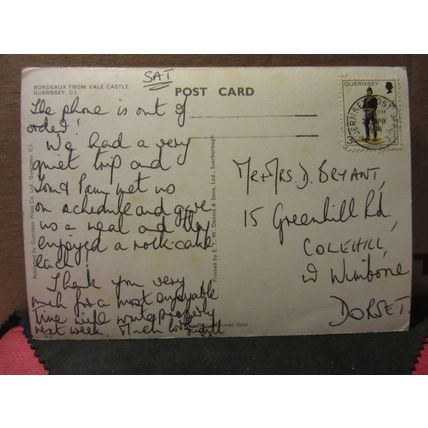 SAT
BORDEAUX FROM VALE CASTLE,
GUERNSEY, C.I.
POST CARD
GUERNSEY
The phone is out of
order!
We had a very
quiet trip and
Pam met us
on schedule and gave
us a meal and they
enjoyed a rock-cake
each!
Thank you very
much for a most enjoyable
time will write properly
next week. Much love
Mr & Mrs. D. BRYANT,
15 Greenhill Rd,
COLEHILL,
Wimborne
DORSET.
Published by Guernsey Press Co. Ltd., Guernsey, C.I.
Printed by E. T. W. Dennis & Sons, Ltd., Scarborough